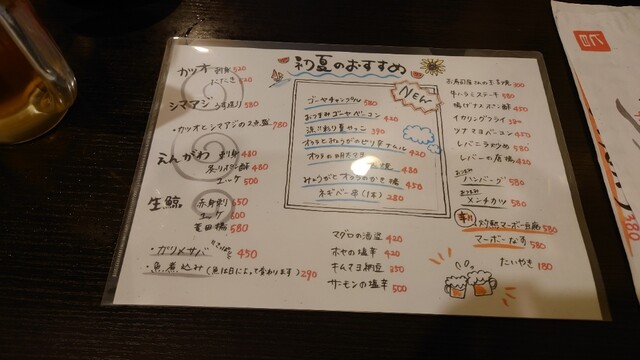 初夏のおすすめ
カツオ 刺身 520
たたき 520
シマアジ うす造り 580
・カツオとシマアジの2点盛 780
えんがわ 刺身 480
炙りポン酢 480
ユッケ 500
生鯨 赤身刺 650
ユッケ 600
竜田揚 580
・ガリ〆サバ 450
・魚煮込み(魚は日によって変わります) 290
NEW
ゴーヤチャンプル 580
おつまみゴーヤベーコン 420
390
オクラとみょうがのピリ辛ナムル
420
オクラの明太
480
みょうがとオクラのかき揚 450
ネギベー串(1本) 280
マグロの酒盗 420
ホヤの塩辛 420
キムマヨ納豆 350
サーモンの塩辛 500
お寿司屋さんの玉子焼 300
牛ハラミステーキ 580
揚げナスポン酢 450
イカリングフライ
ツナマヨベーコン
レバニラ炒め 580
レバーの唐揚
ハンバーグ 580
メンチカツ 580
辛!! マーボー豆腐 580
マーボーなす 580
たいやき 180